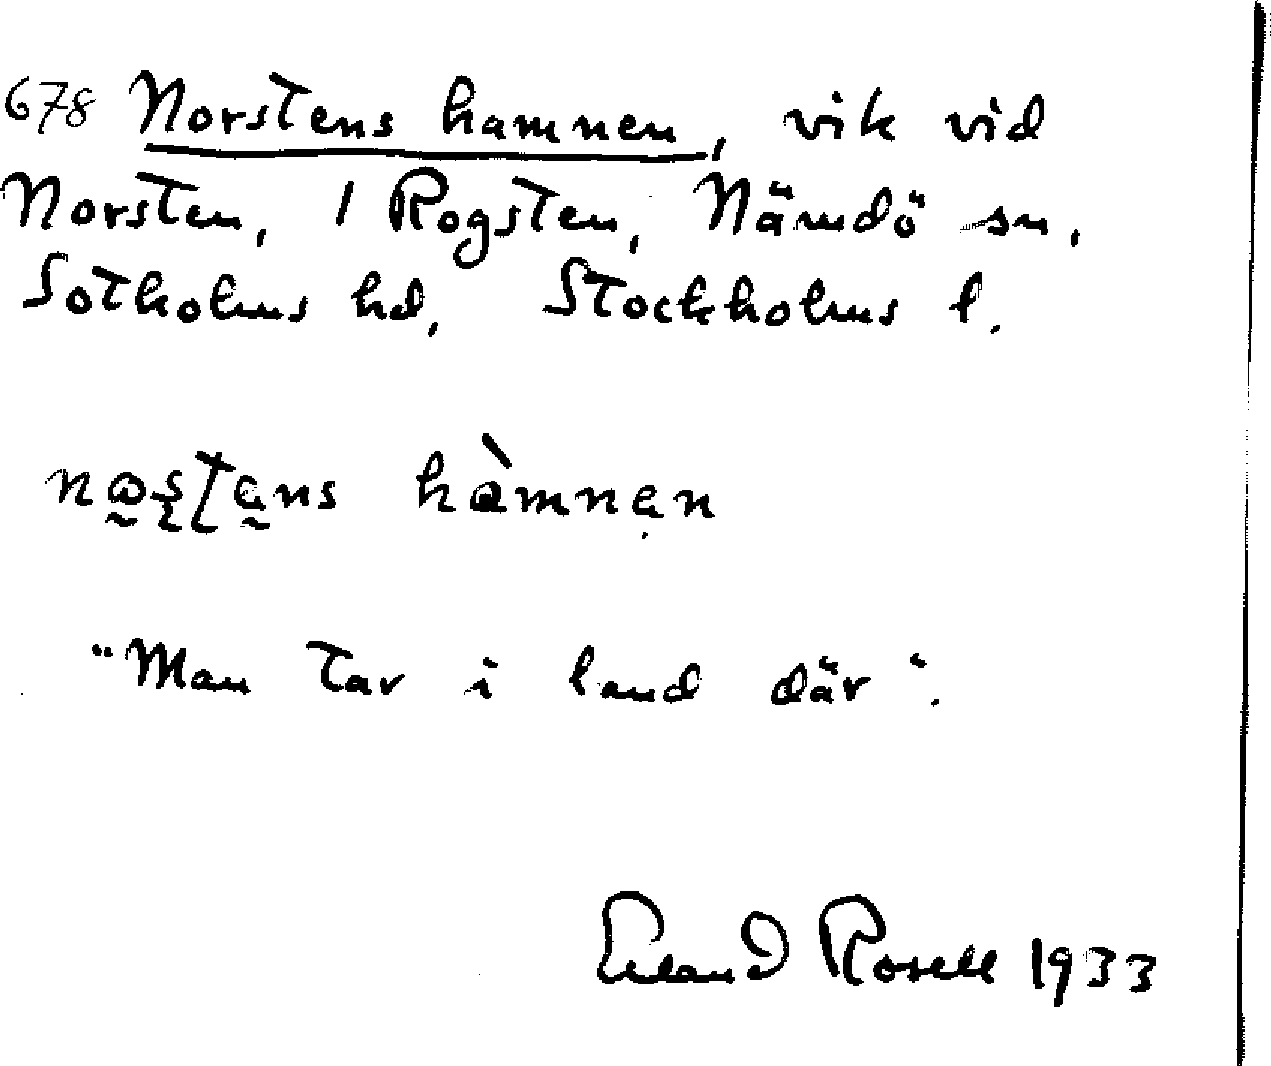 678 Norstens hamnen, vik vid
Norsten, 1 Rogsten, Nämdö sn,
Sotholms hd, Stockholms l.
hàmnən
"Man tar i land där".
Erland Rosell 1933